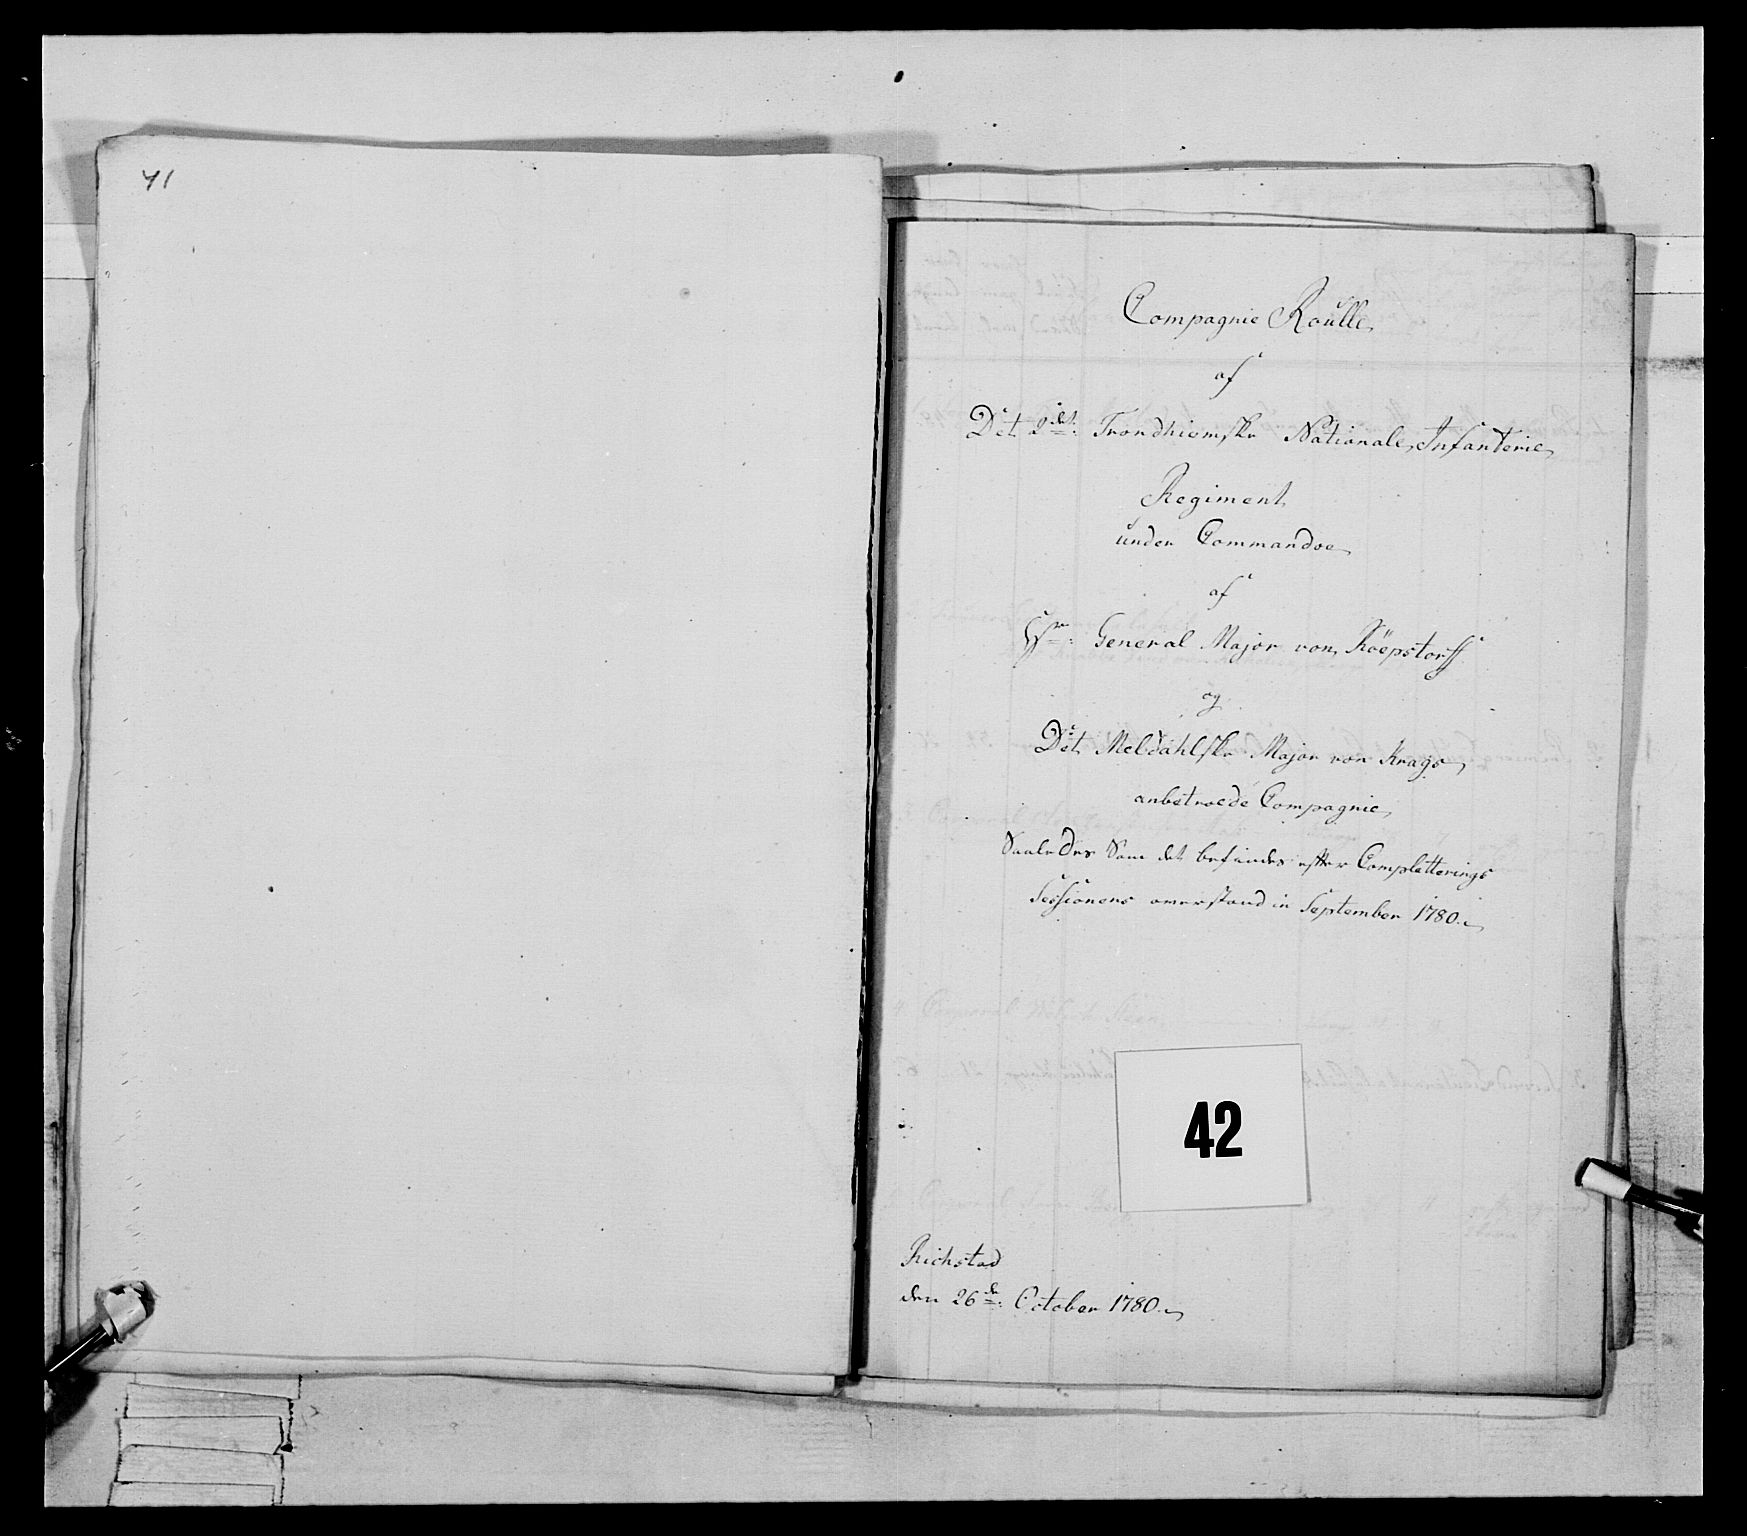 41
Compagnie Roulle
af
Det 2det: Trondhiemske Nationale Infanterie
Regiment
under Commandoe
af
Hr: General Major von Köepstorff
og
Det Meldahlske Major von Krags
anbetroede Compagnie
Saaledes Som det befindes efter Completterings
Sessionens overstand in September 1780.
42
Richstad
den 26de: October 1780.